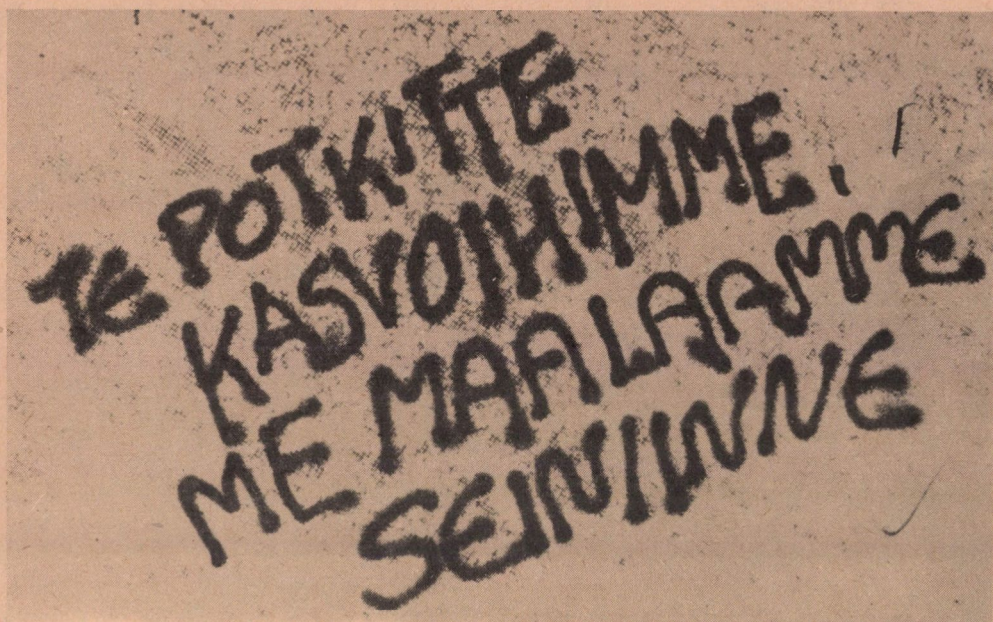 TE POTKITTE
KASVOIHIMME,
ME MAALAAMME
SEINIINNE